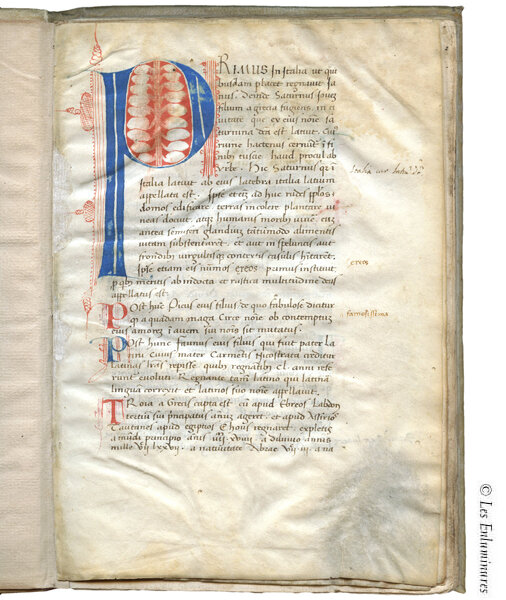 PRIMUS In Italia ut qui
busdam placet regnavit Ja
nus. Deinde Saturnus Jovem
filium a grecia fugiens in ci
vitate que ex eius noie Sa
turnina dca est latuit. Cui
ruine hactenus cernunt i fi
nibus tuscie haud procul ab
Urbe. Hic Saturnus q i
Italia latuit ab eius latebra italia latium
appellata est. Ipse etc ad huc rudes pplos
domos edificare terras incolere plantare vi
neas docuit atq humanis moribus vivere cu
antea semiferi glandium tantumodo alimentis
vitam substentarent et aut in speluncis aut
frondibus virgultisq contextis casulis hitaret.
Ipse etiam eis numos ereos primus instituit
p quibus meritis ab indocta et rustica multitudine deus
appellatus est.
Post hunc Picus eius filius de quo fabulose dicitur
q a quadam maga Circe noie ob contemptum
eius amorem i avem sui nois sit mutatus.
Post hunc Faunus eius filius qui fuit pater La
tini Cuius mater Carmentis creditur
Latinas lras repisse quibus regnantibus CL. anni refe
runt evoluti. Regnante tam latino qui latina
lingua correxit et latinos suo noie appellavit.
Troia a Grecis capta est cu apud Ebreos Labdon
tertium sui principatus annum ageret et apud Assirios
Tautanes apud egiptios Thous regnaret expletis
a mundi principio anis a diluvio annis
mille a nativitate Abrae
Italia cur latiu
ereos
famosissima
© Les Enluminures